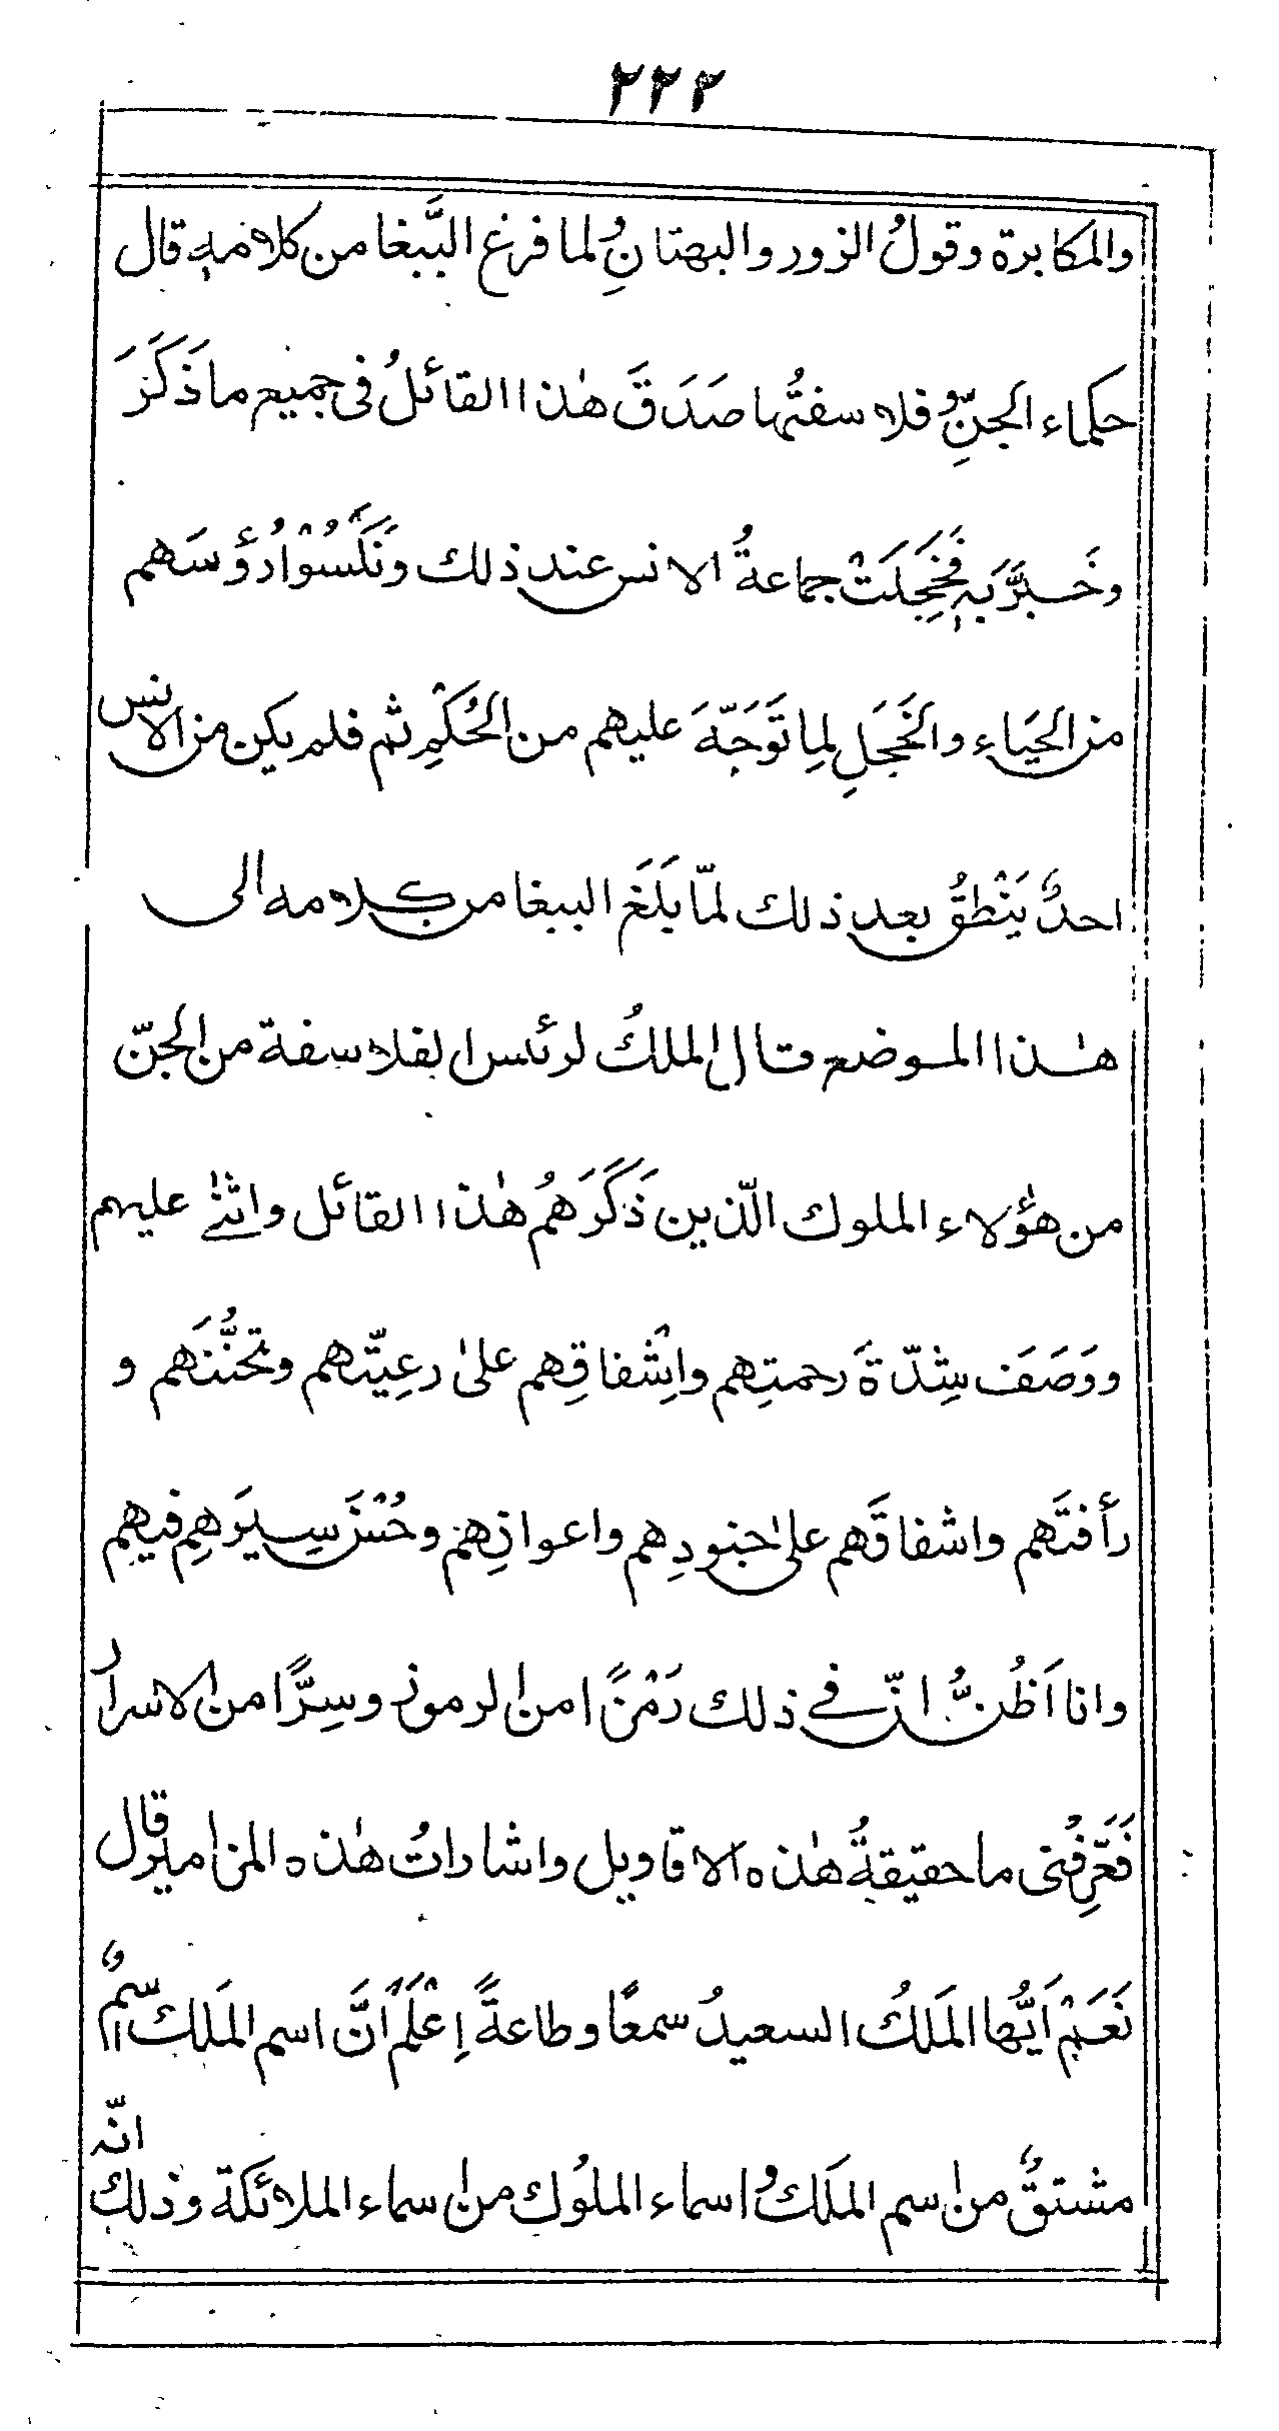 ٢٢٢
والمكابرة وقولُ الزور والبهتانِ لما فرغ الببَّغا من كلامهٖ قال
حكماء الجنِّ و فلاسفتُها صَدَقَ هٰذا القائلُ فى جميع ما ذَكَرَ
وخَبَّرَ بهٖ فَخَجِلَتْ جماعةُ الانس عند ذلك ونَكَّسُوْا رُؤُسَهم
من الحَيَاء والخَجَلِ لِما تَوَجَّهَ عليهم من الحُكْمِ ثم فلم يكن من الانس
احدٌ يَنْطِقُ بعد ذلك لمّا بَلَغَ الببغا من كلامه الى
هٰذا الموضع قال الملكُ لرئس الفلاسفة من الجنّ
من هٰؤلاء الملوك الّذين ذَكَرَهُم هٰذا القائل واثنٰے عليهم
ووَصَفَ شِدّةَ رحمتِهم واِشْفاقِهم علىٰ رعِيّتهم وتحنُّنَهم و
رأفتَهم واشفاقَهم علىٰ جنودِهم واعوانِهم وحُسْنَ سِيَرَهِم فيهِم
وانا اَظُنُّ انّ فے ذلك رَمْزًا من الرموز وسِرًّا من الاسرار
فَعَرِّفْنى ما حقيقةُ هٰذه الاقاويل واشاراتُ هٰذه المزامير قال
نَعَمْ اَيُّها المَلكُ السعيدُ سمعًا وطاعةً اِعْلَمْ اَنَّ اسم المَلك اسمٌ
مشتقٌّ من اسم المَلَكُ و اسماء الملُوك من اسماء الملائكة وذلك انّه